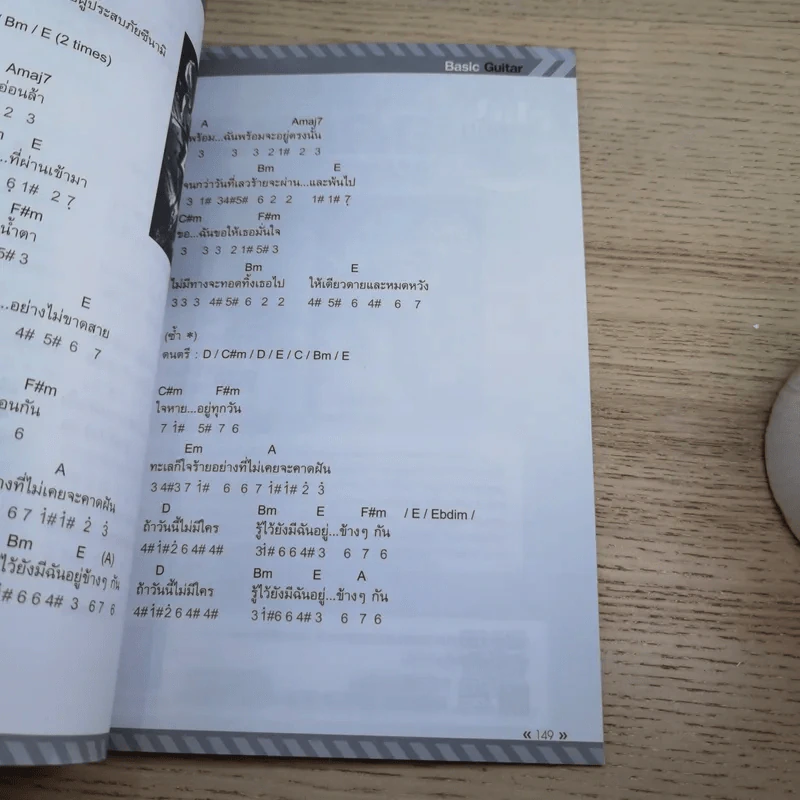 ผู้ประสบภัยซึนามิ
/ Bm / E (2 times)
Amaj7
อ่อนล้า
2 3
E
...ที่ผ่านเข้ามา
6̣ 1# 2 7̣
F#m
น้ำตา
5# 3
E
...อย่างไม่ขาดสาย
4# 5# 6 7
F#m
อนกัน
6
A
างที่ไม่เคยจะคาดฝัน
6 7 1̇# 1̇# 2̇ 3̇
Bm E (A)
ไว้ยังมีฉันอยู่ข้างๆ กัน
# 6 6 4# 3 6 7 6
Basic Guitar
A Amaj7
พร้อม...ฉันพร้อมจะอยู่ตรงนั้น
3 3 3 2 1# 2 3
Bm E
จนกว่าวันที่เลวร้ายจะผ่าน...และพ้นไป
3 1# 3 4# 5# 6 2 2 1# 1# 7̣
C#m F#m
ขอ...ฉันขอให้เธอมั่นใจ
3 3 3 2 1# 5# 3
Bm E
ไม่มีทางจะทอดทิ้งเธอไป ให้เดียวดายและหมดหวัง
3 3 3 4# 5# 6 2 2 4# 5# 6 4# 6 7
(ซ้ำ *)
ดนตรี : D / C#m / D / E / C / Bm / E
C#m F#m
ใจหาย...อยู่ทุกวัน
7 1̇# 5# 7 6
Em A
ทะเลก็ใจร้ายอย่างที่ไม่เคยจะคาดฝัน
3 4#3 7 1̇# 6 6 7 1̇#1̇# 2̇ 3̇
D Bm E F#m / E / Ebdim /
ถ้าวันนี้ไม่มีใคร รู้ไว้ยังมีฉันอยู่...ข้างๆ กัน
4# 1̇#2̇ 6 4# 4# 3 1̇# 6 6 4# 3 6 7 6
D Bm E A
ถ้าวันนี้ไม่มีใคร รู้ไว้ยังมีฉันอยู่...ข้างๆ กัน
4# 1̇#2̇ 6 4# 4# 3 1̇#6 6 4# 3 6 7 6
« 149 »